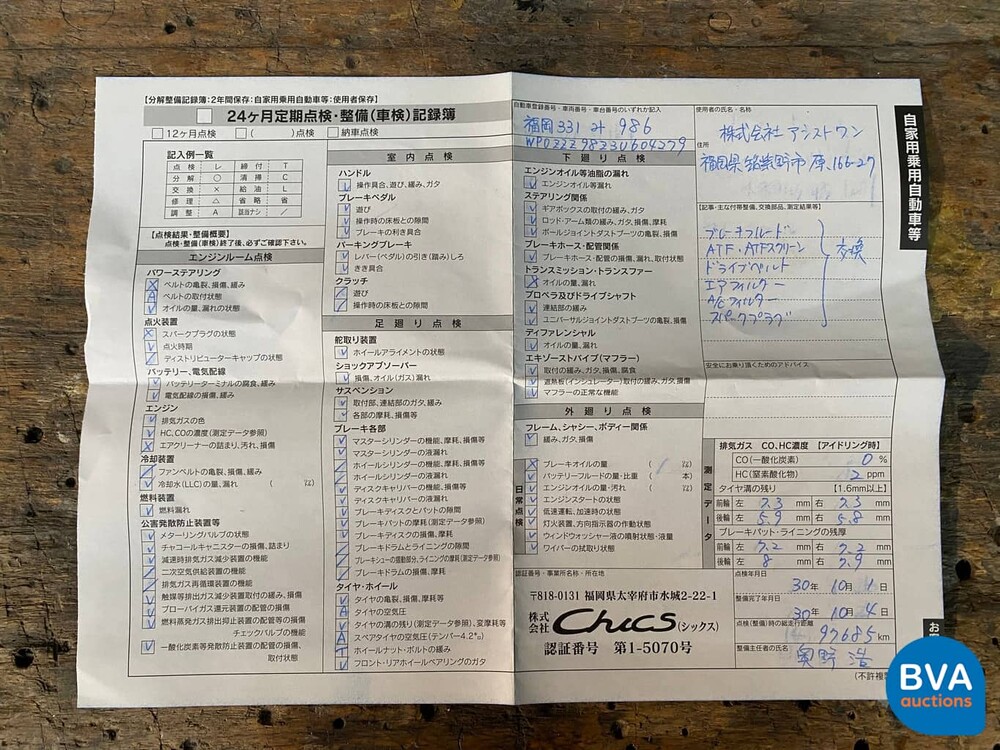 【分解整備記録簿:2年間保存:自家用乗用自動車等:使用者保存】
24ヶ月定期点検・整備(車検)記録簿
12ヶ月点検 ( )点検 納車点検
記入例一覧
点検 レ 締付 T
分解 ○ 清掃 C
交換 × 給油 L
修理 △ 省略 省
調整 A 該当ナシ ／
【点検結果・整備概要】
点検・整備(車検)終了後、必ずご確認下さい。
エンジンルーム点検
パワーステアリング
ベルトの亀裂、損傷、緩み
ベルトの取付状態
オイルの量、漏れの状態
点火装置
スパークプラグの状態
点火時期
ディストリビューターキャップの状態
バッテリー、電気配線
バッテリーターミナルの腐食、緩み
電気配線の損傷、緩み
エンジン
排気ガスの色
HC,COの濃度(測定データ参照)
エアクリーナーの詰まり、汚れ、損傷
冷却装置
ファンベルトの亀裂、損傷、緩み
冷却水(LLC)の量、漏れ ( ㍑)
燃料装置
燃料漏れ
公害発散防止装置等
メターリングバルブの状態
チャコールキャニスターの損傷、詰まり
減速時排気ガス減少装置の機能
二次空気供給装置の機能
排気ガス再循環装置の機能
触媒等排出ガス減少装置取付の緩み、損傷
ブローバイガス還元装置の配管の損傷
燃料蒸発ガス排出抑止装置の配管等の損傷
チェックバルブの機能
一酸化炭素等発散防止装置の配管の損傷、
取付状態
室内点検
ハンドル
操作具合、遊び、緩み、ガタ
ブレーキペダル
遊び
操作時の床板との隙間
ブレーキの利き具合
パーキングブレーキ
レバー(ペダル)の引き(踏み)しろ
きき具合
クラッチ
遊び
操作時の床板との隙間
足廻り点検
舵取り装置
ホイールアライメントの状態
ショックアブソーバー
損傷、オイル(ガス)漏れ
サスペンション
取付部、連結部のガタ、緩み
各部の摩耗、損傷等
ブレーキ各部
マスターシリンダーの機能、摩耗、損傷等
マスターシリンダーの液漏れ
ホイールシリンダーの機能、損傷等
ホイールシリンダーの液漏れ
ディスクキャリパーの機能、損傷等
ディスクキャリパーの液漏れ
ブレーキディスクとパットの隙間
ブレーキパットの摩耗(測定データ参照)
ブレーキディスクの摩耗、損傷
ブレーキドラムとライニングの隙間
ブレーキシューの摺動部分、ライニングの摩耗(測定データ参照)
ブレーキドラムの損傷、摩耗
タイヤ・ホイール
タイヤの亀裂、損傷、摩耗等
タイヤの空気圧
タイヤの溝の残り(測定データ参照)、変摩耗等
スペアタイヤの空気圧(テンパー4.2㌔)
ホイールナット・ボルトの緩み
フロント・リアホイールベアリングのガタ
自動車登録番号・車両番号・車台番号のいずれか記入
福岡 331 す 986
WP0ZZZ98Z3U604279
下廻り点検
エンジンオイル等油脂の漏れ
エンジンオイル等漏れ
ステアリング関係
ギアボックスの取付の緩み、ガタ
ロッド・アーム類の緩み、ガタ、損傷、摩耗
ボールジョイントダストブーツの亀裂、損傷
ブレーキホース・配管関係
ブレーキホース・配管の損傷、漏れ、取付状態
トランスミッション・トランスファー
オイルの量、漏れ
プロペラ及びドライブシャフト
連結部の緩み
ユニバーサルジョイントダストブーツの亀裂、損傷
ディファレンシャル
オイルの量、漏れ
エキゾーストパイプ(マフラー)
取付の緩み、ガタ、損傷、腐食
遮熱板(インシュレーター)取付の緩み、ガタ、損傷
マフラーの正常な機能
外廻り点検
フレーム、シャシー、ボディー関係
緩み、ガタ、損傷
日常点検
ブレーキオイルの量 ( 1 ㍑)
バッテリーフルードの量・比重 ( 本)
エンジンオイルの量・汚れ ( ㍑)
エンジンスタートの状態
低速運転、加速時の状態
灯火装置、方向指示器の作動状態
ウィンドウォッシャー液の噴射状態・液量
ワイパーの拭取り状態
認証番号・事業所名称・所在地
〒818-0131 福岡県太宰府市水城2-22-1
株式会社 Chics(シックス)
認証番号 第1-5070号
使用者の氏名・名称
株式会社 アシストワン
住所
福岡県 筑紫野市 原、166-27
自家用乗用自動車等
【記事・主な付帯整備、交換部品、測定結果等】
ブレーキフルード
ATF・ATFスクリーン
ドライブベルト
エアフィルター
A/Cフィルター
スパークプラグ
交換
安全にお乗り頂くためのアドバイス
測定データ
排気ガス CO、HC濃度 【アイドリング時】
CO(一酸化炭素) 0 %
HC(窒素酸化物) 2 ppm
タイヤ溝の残り 【1.6mm以上】
前輪 左 7.3 mm 右 7.3 mm
後輪 左 5.9 mm 右 5.8 mm
ブレーキパット・ライニングの残厚
前輪 左 7.2 mm 右 7.2 mm
後輪 左 8 mm 右 7.9 mm
点検年月日
30年 10月 1日
整備完了年月日
30年 10月 4日
点検(整備)時の総走行距離
97685 km
整備主任者の氏名
奥野 浩
(不許複製
お客
BVA
auctions